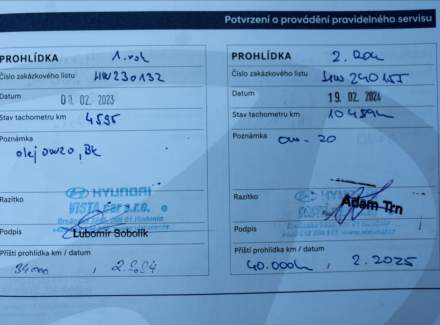 Potvrzení o provádění pravidelného servisu
PROHLÍDKA 1. rok
Číslo zakázkového listu HW230132
Datum 09. 02. 2023
Stav tachometru km 4595
Poznámka
olej 0w20, BK
Razítko HYUNDAI
VISTA car s.r.o.
Podpis Lubomír Sobolík
Příští prohlídka km / datum
34000, 2.2024
PROHLÍDKA 2. Rok
Číslo zakázkového listu
Datum 19. 02. 2024
Stav tachometru km
Poznámka
Razítko
Adam Trn
Podpis
Příští prohlídka km / datum
40.000, 2.2025